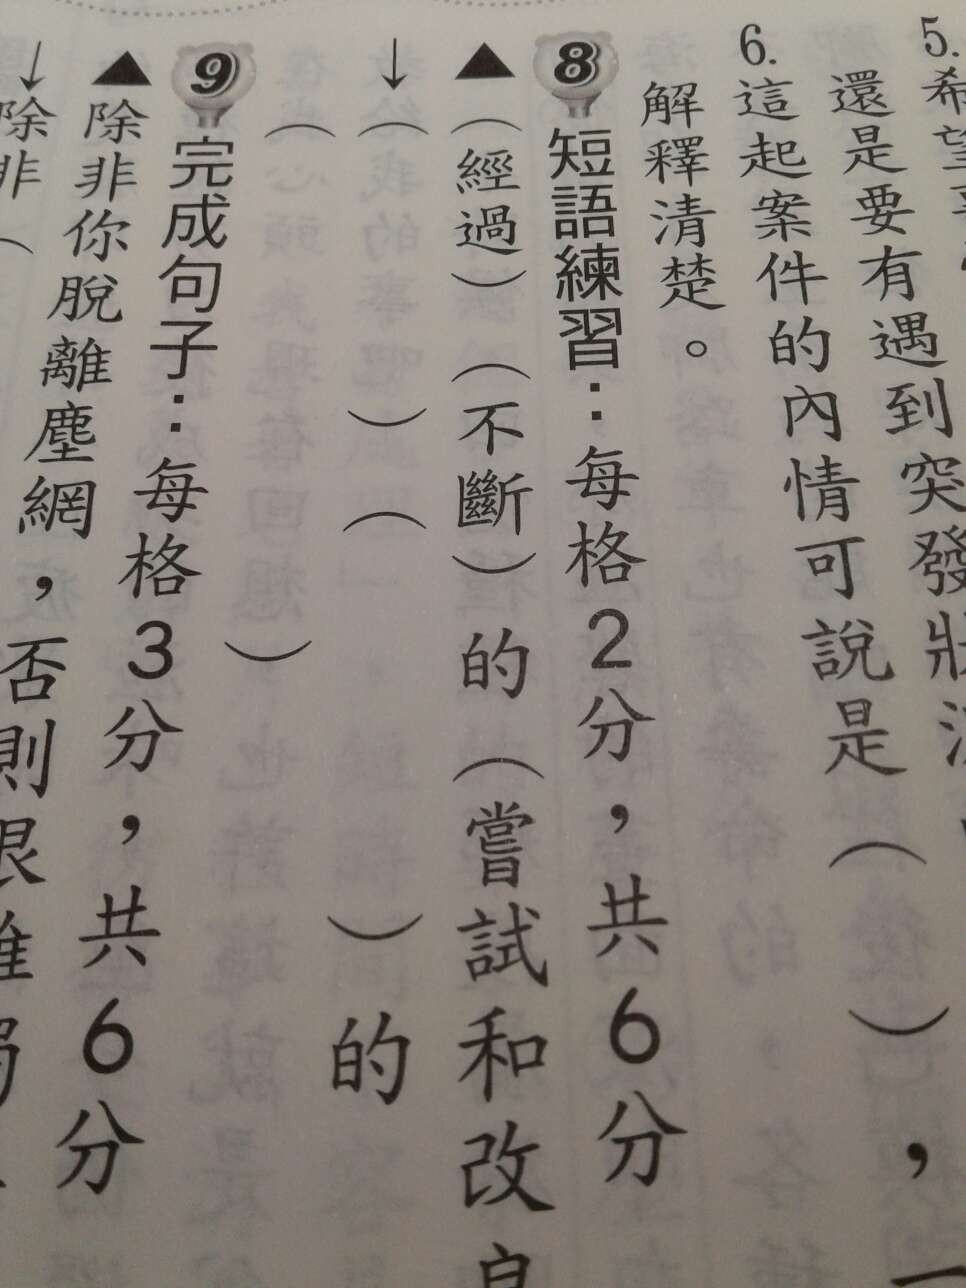 5.希望
還是要有遇到突發狀
6.這起案件的內情可說是（　　），
解釋清楚。
8 短語練習：每格2分，共6分
▲（經過）（不斷）的（嘗試和改
↓（　　）（　　）的
（　　）
9 完成句子：每格3分，共6分
▲除非你脫離塵網，否則很難
↓除非（